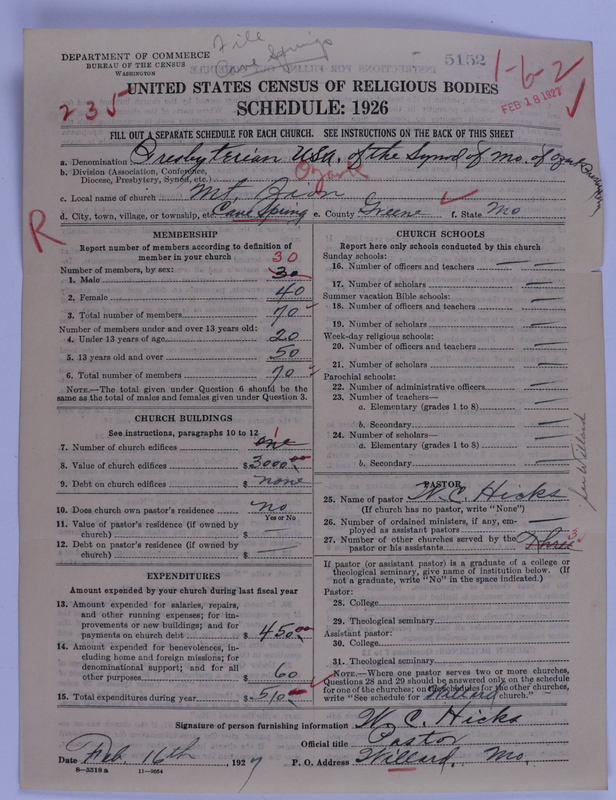 Fill
Cave Springs
DEPARTMENT OF COMMERCE
BUREAU OF THE CENSUS
WASHINGTON
5152
1-6-2
FEB 18 1927
235
UNITED STATES CENSUS OF RELIGIOUS BODIES
SCHEDULE: 1926
FILL OUT A SEPARATE SCHEDULE FOR EACH CHURCH. SEE INSTRUCTIONS ON THE BACK OF THIS SHEET
a. Denomination Presbyterian USA. of the Synod of Mo. of Ozark
b. Division (Association, Conference, Diocese, Presbytery, Synod, etc.) Ozark
c. Local name of church Mt. Zion
d. City, town, village, or township, etc. Cave Spring e. County Greene f. State Mo
R
MEMBERSHIP
Report number of members according to definition of member in your church
Number of members, by sex: 30
1. Male 30
2. Female 40
3. Total number of members 70
Number of members under and over 13 years old:
4. Under 13 years of age 20
5. 13 years old and over 50
6. Total number of members 70
NOTE.—The total given under Question 6 should be the same as the total of males and females given under Question 3.
CHURCH BUILDINGS
See instructions, paragraphs 10 to 12
7. Number of church edifices one 1
8. Value of church edifices $3000.00
9. Debt on church edifices $ none
10. Does church own pastor's residence no
Yes or No
11. Value of pastor's residence (if owned by church) $
12. Debt on pastor's residence (if owned by church) $
EXPENDITURES
Amount expended by your church during last fiscal year
13. Amount expended for salaries, repairs, and other running expenses; for improvements or new buildings; and for payments on church debt $ 450.00
14. Amount expended for benevolences, including home and foreign missions; for denominational support; and for all other purposes $ 60
15. Total expenditures during year $ 510
CHURCH SCHOOLS
Report here only schools conducted by this church
Sunday schools:
16. Number of officers and teachers
17. Number of scholars
Summer vacation Bible schools:
18. Number of officers and teachers
19. Number of scholars
Week-day religious schools:
20. Number of officers and teachers
21. Number of scholars
Parochial schools:
22. Number of administrative officers
23. Number of teachers—
a. Elementary (grades 1 to 8)
b. Secondary
24. Number of scholars—
a. Elementary (grades 1 to 8)
b. Secondary
See Willard
PASTOR
25. Name of pastor W. C. Hicks
(If church has no pastor, write "None")
26. Number of ordained ministers, if any, employed as assistant pastors
27. Number of other churches served by the pastor or his assistants Three 3
If pastor (or assistant pastor) is a graduate of a college or theological seminary, give name of institution below. (If not a graduate, write "No" in the space indicated.)
Pastor:
28. College
29. Theological seminary
Assistant pastor:
30. College
31. Theological seminary
NOTE.—Where one pastor serves two or more churches, Questions 28 and 29 should be answered only on the schedule for one of the churches; on the schedules for the other churches, write "See schedule for Willard church."
Signature of person furnishing information W. C. Hicks
Official title Pastor
Date Feb 16th, 1927 P. O. Address Willard, Mo.
8—5318 a 11—9054